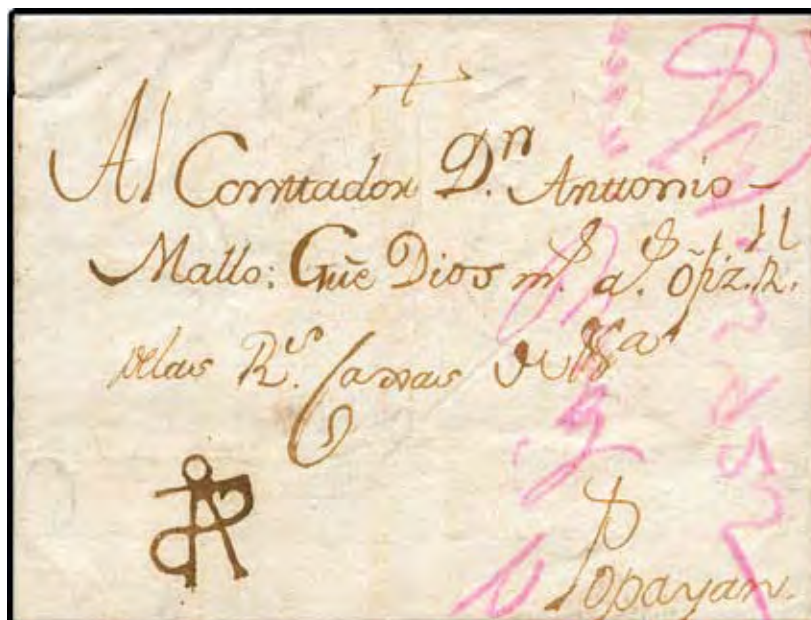 +
Al Conttador D.n Anttonio -
Mallo: Gũe Dios m.s a.s õfiz.R.ll
delas R.s Caxas de
Popayan.